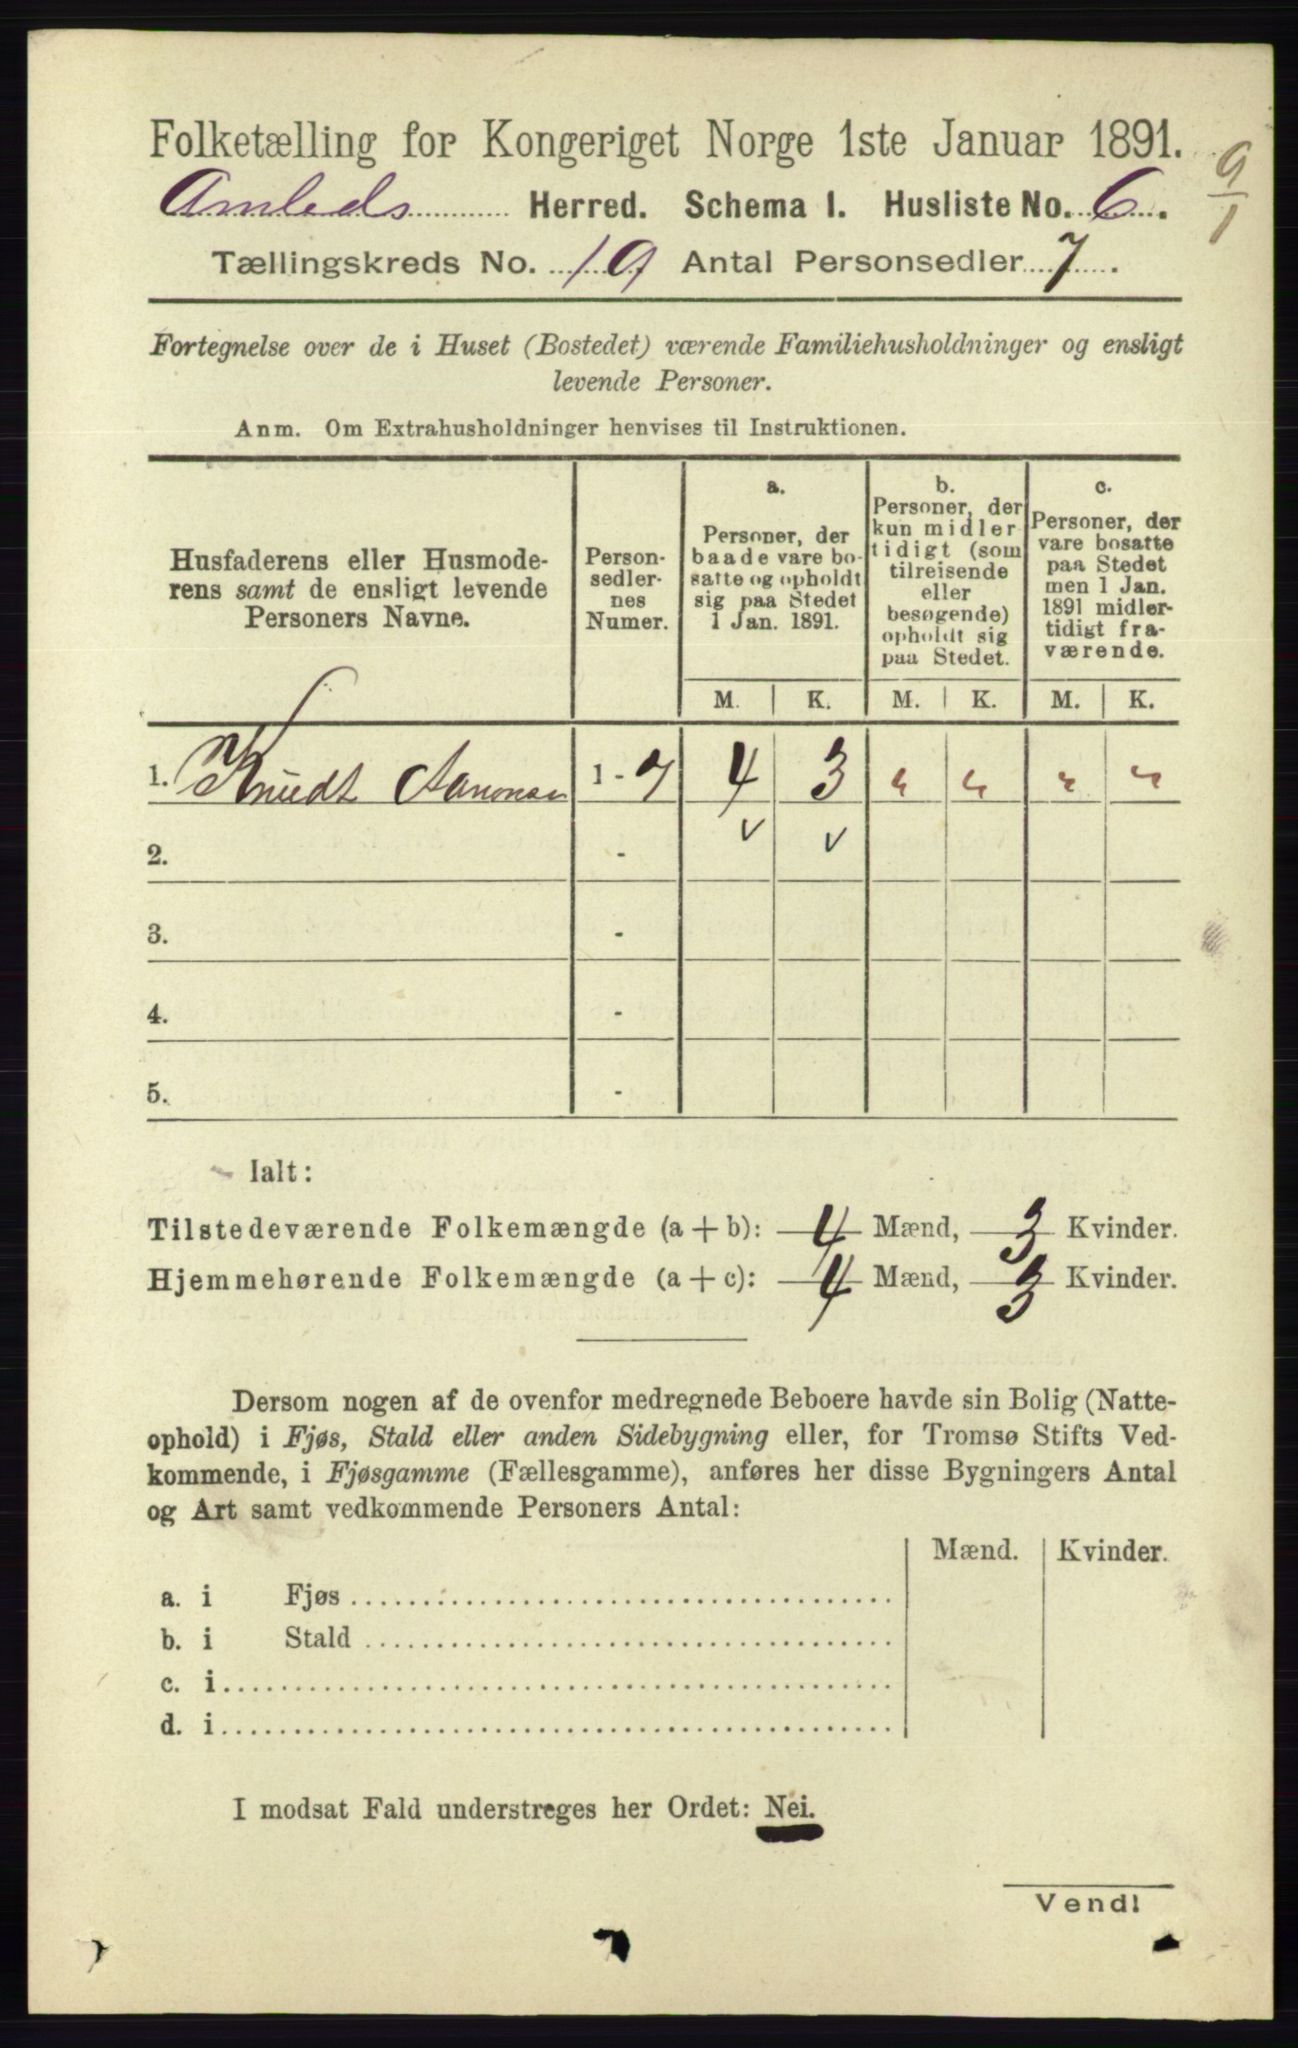 Folketælling for Kongeriget Norge 1ste Januar 1891.
9/1
Amleds Herred. Schema I. Husliste No. 6.
Tællingskreds No. 19 Antal Personsedler 7.
Fortegnelse over de i Huset (Bostedet) værende Familiehusholdninger og ensligt
levende Personer.
Anm. Om Extrahusholdninger henvises til Instruktionen.
Husfaderens eller Husmode-
rens samt de ensligt levende
Personers Navne.
Person-
sedler-
nes
Numer.
a.
Personer, der
baade vare bo-
satte og opholdt
sig paa Stedet
1 Jan. 1891.
b.
Personer, der
kun midler-
tidigt (som
tilreisende
eller
besøgende)
opholdt sig
paa Stedet.
c.
Personer, der
vare bosatte
paa Stedet
men 1 Jan.
1891 midler-
tidigt fra-
værende.
M. K. M. K. M. K.
1. Knudt Aanonsen 1 - 7 4 3 " " " "
2. - v v
3. -
4. -
5. -
Ialt:
Tilstedeværende Folkemængde (a + b): 4 Mænd, 3 Kvinder.
Hjemmehørende Folkemængde (a + c): 4 Mænd, 3 Kvinder.
Dersom nogen af de ovenfor medregnede Beboere havde sin Bolig (Natte-
ophold) i Fjøs, Stald eller anden Sidebygning eller, for Tromsø Stifts Ved-
kommende, i Fjøsgamme (Fællesgamme), anføres her disse Bygningers Antal
og Art samt vedkommende Personers Antal:
Mænd. Kvinder.
a. i Fjøs
b. i Stald
c. i
d. i
I modsat Fald understreges her Ordet: Nei.
Vend!